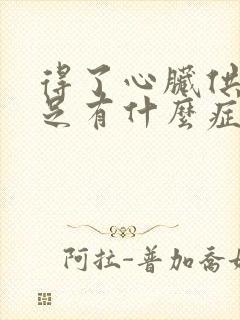 得了心臟供
足有什麼症
阿拉-普加喬